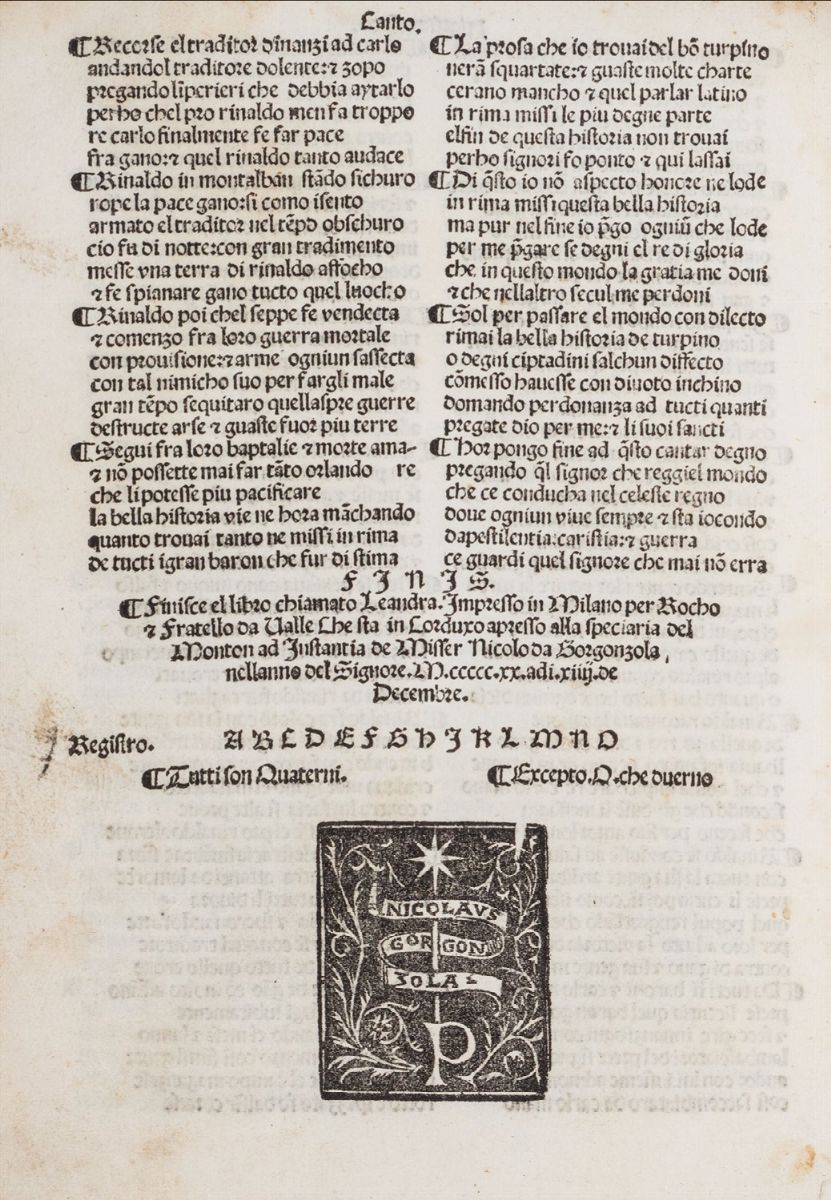 Canto.
¶Recorse el traditor dinanzi ad carlo
andandol traditore dolente:⁊ zopo
pregando lĩperieri che debbia aytarlo
perho chel pro rinaldo men fa troppo
re carlo finalmente fe far pace
fra gano:⁊ quel rinaldo tanto audace
¶Rinaldo in montalban stãdo sichuro
rope la pace ganorsi como isento
armato el traditor nel tẽpo obschuro
cio fu di notte:con gran tradimento
messe vna terra di rinaldo affocho
⁊ fe spianare gano tucto quel luocho
¶Rinaldo poi chel seppe fe vendecta
⁊ comenzo fra loro guerra mortale
con prouisione:⁊ arme ogniun sassecta
con tal nimicho suo per fargli male
gran tẽpo sequitaro quellaspre guerre
destructe arse ⁊ guaste fuor piu terre
¶Segui fra loro baptalie ⁊ morte ama-
⁊ nõ possette mai far tãto orlando re
che li potesse piu pacificare
la bella historia vie ne hora mãchando
quanto trouai tanto ne missi in rima
de tucti igran baron che fur di stima
¶La prosa che io trouai del bõ turpino
nerã squartate:⁊ guaste molte charte
cerano mancho ⁊ quel parlar latino
in rima missi le piu degne parte
elfin de questa historia non trouai
perho signori fo ponto ⁊ qui lassai
¶Di q̃sto io nõ aspecto honore ne lode
in rima missi questa bella historia
ma pur nel fine io p̃go ogniũ che lode
per me p̃gare se degni el re di gloria
che in questo mondo la gratia me doni
⁊ che nellaltro secul me perdoni
¶Sol per passare el mondo con dilecto
rimai la bella historia de turpino
o degni ciptadini salchun diffecto
cõmesso hauesse con diuoto inchino
domando perdonanza ad tucti quanti
pregate dio per me:⁊ li suoi sancti
¶Hor pongo fine ad q̃sto cantar degno
pregando q̃l signor che reggiel mondo
che ce conducha nel celeste regno
doue ogniun viue sempre ⁊ sta iocondo
dapestilentia:caristia:⁊ guerra
ce guardi quel signore che mai nõ erra
FINIS.
¶Finisce el libro chiamato Leandra. Impresso in Milano per Rocho
⁊ Fratello da Valle Che sta in Corduxo apresso alla speciaria del
Monton ad Instantia de Misser Nicolo da Gorgonzola,
nellanno del Signore.M.ccccc.xx.adi.xiiij.de
Decembre.
Registro. A B C D E F G H I K L M N O
¶Tutti son Quaterni. ¶Excepto.O.che duerno
NICOLAVS
GORGON
ZOLA
P